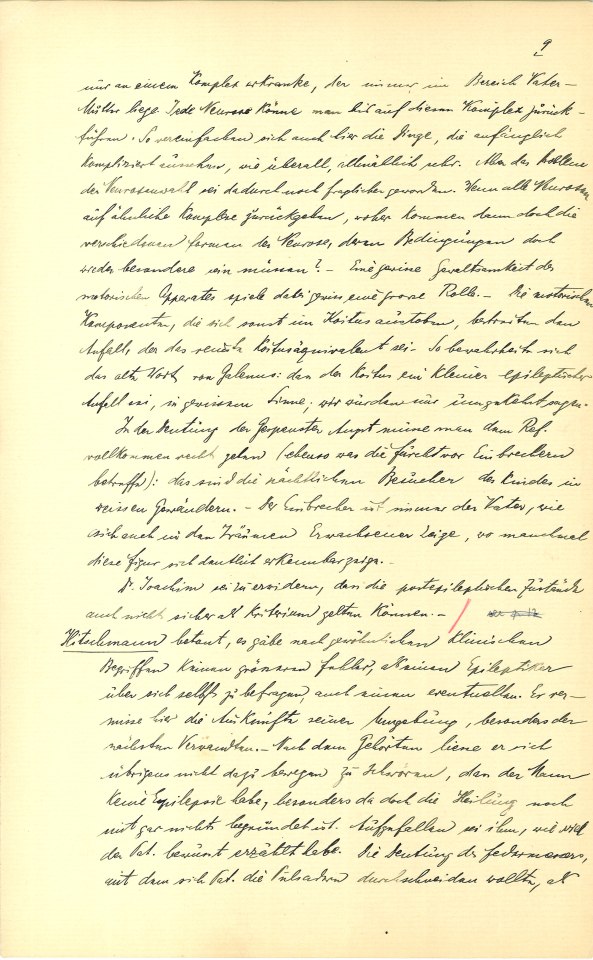 9
nur an einem Komplex erkranke, der immer im Bereich Vater-
Mutter liege. Jede Neurose könne man bis auf diesen Komplex zurück-
führen. So vereinfachen sich auch hier die Dinge, die anfänglich
kompliziert aussehen, wie überall, allmählich sehr. Aber das Problem
der Neurosenwahl sei dadurch noch fraglicher geworden. Wenn alle Neurosen
auf ähnliche Komplexe zurückgehen, woher kommen dann doch die
verschiedenen Formen der Neurose, deren Bedingungen doch
wieder besondere sein müssen? - Eine gewisse Gewaltsamkeit des
motorischen Apparates spiele dabei gewiss eine grosse Rolle. - Die motorischen
Komponenten, die sich sonst im Koitus austoben, bestreiten den
Anfall, der das reinste Koitusäquivalent sei. So bewahrheite sich
das alte Wort von Galenus: dass der Koitus ein kleiner epileptischer
Anfall sei, in gewissem Sinne; wir würden nur umgekehrt sagen.
In der Deutung der Gespenster Angst müsse man dem Ref.
vollkommen recht geben (ebenso was die Furcht vor Einbrechern
betreffe): das sind die nächtlichen Besucher des Kindes in
weissen Gewändern. - Der Einbrecher ist immer der Vater, wie
sich auch in den Träumen Erwachsener zeige, wo manchmal
diese Figur sich deutlich erkennbar zeige. -
Dr. Joachim sei zu erwidern, dass die postepileptischen Zustände
auch nicht sicher als Kriterium gelten können. -
Hitschmann betont, es gäbe nach gewöhnlichen klinischen
Begriffen keinen grösseren Fehler, als einen Epileptiker
über sich selbst zu befragen, auch einen eventuellen. Er ver-
misse hier die Auskünfte seiner Umgebung, besonders der
nächsten Verwandten. - Nach dem Gehörten liesse er sich
übrigens nicht dazu bewegen zu schwören, dass der Mann
keine Epilepsie habe, besonders da doch die Heilung noch
mit gar nichts begründet ist. Aufgefallen sei ihm, wie viel
der Pat. bewusst erzählt habe. Die Deutung des Federmessers,
mit dem sich Pat. die Pulsadern durchschneiden wollte, als